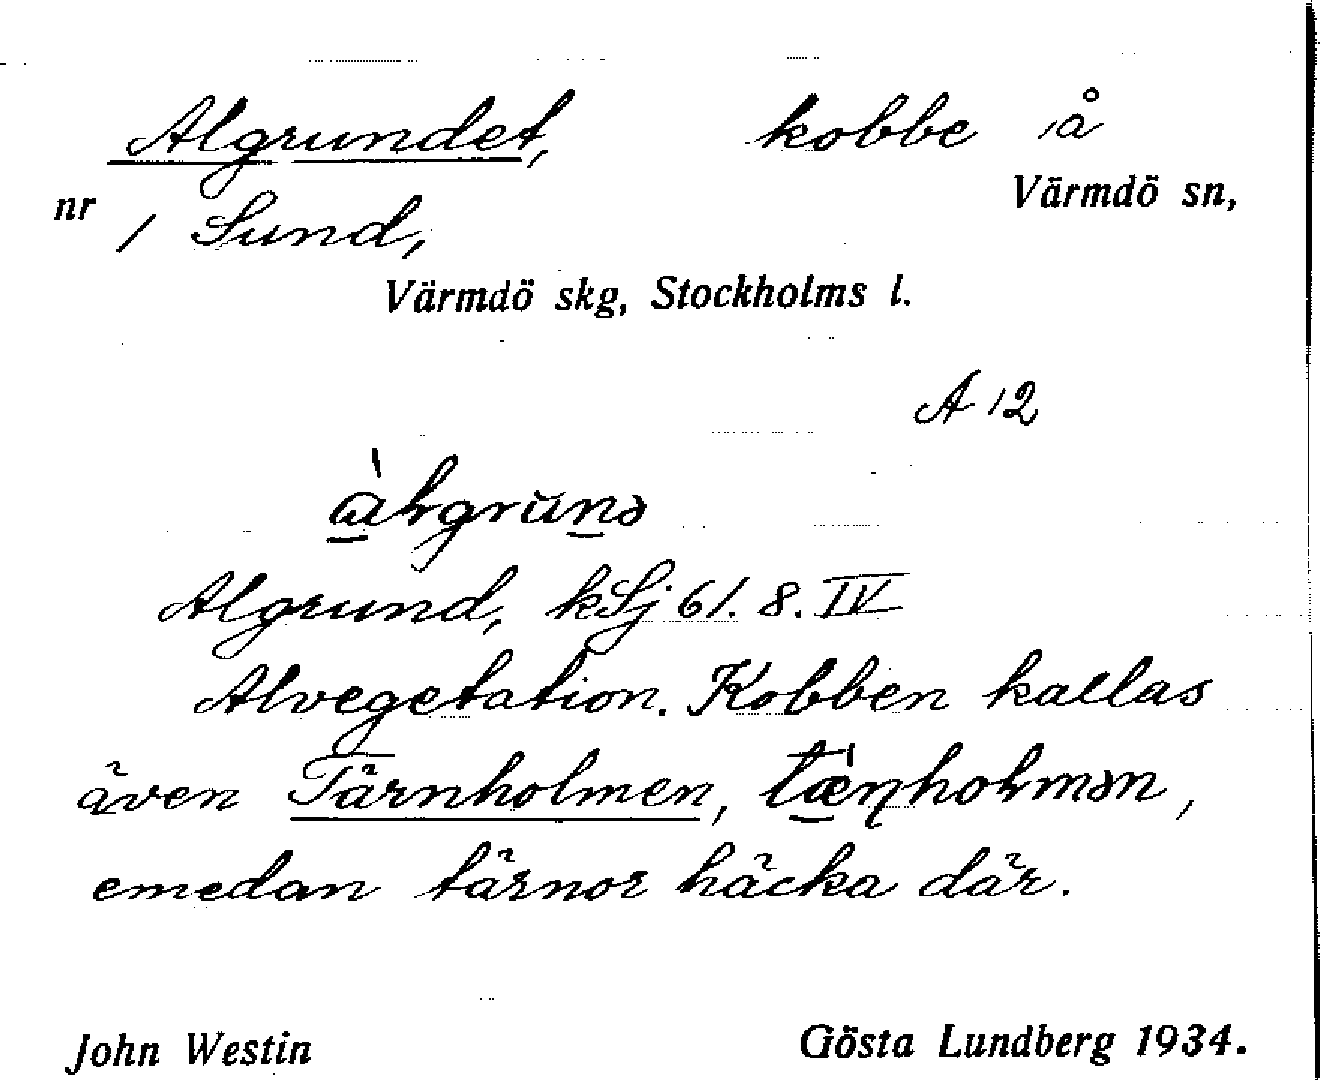 Algrundet, kobbe å
Värmdö sn,
nr 1 Sund,
Värmdö skg, Stockholms l.
A 12
Algrund, kSj 61. 8. IV
Alvegetation. Kobben kallas
även Tärnholmen,
emedan tärnor häcka där.
John Westin Gösta Lundberg 1934.